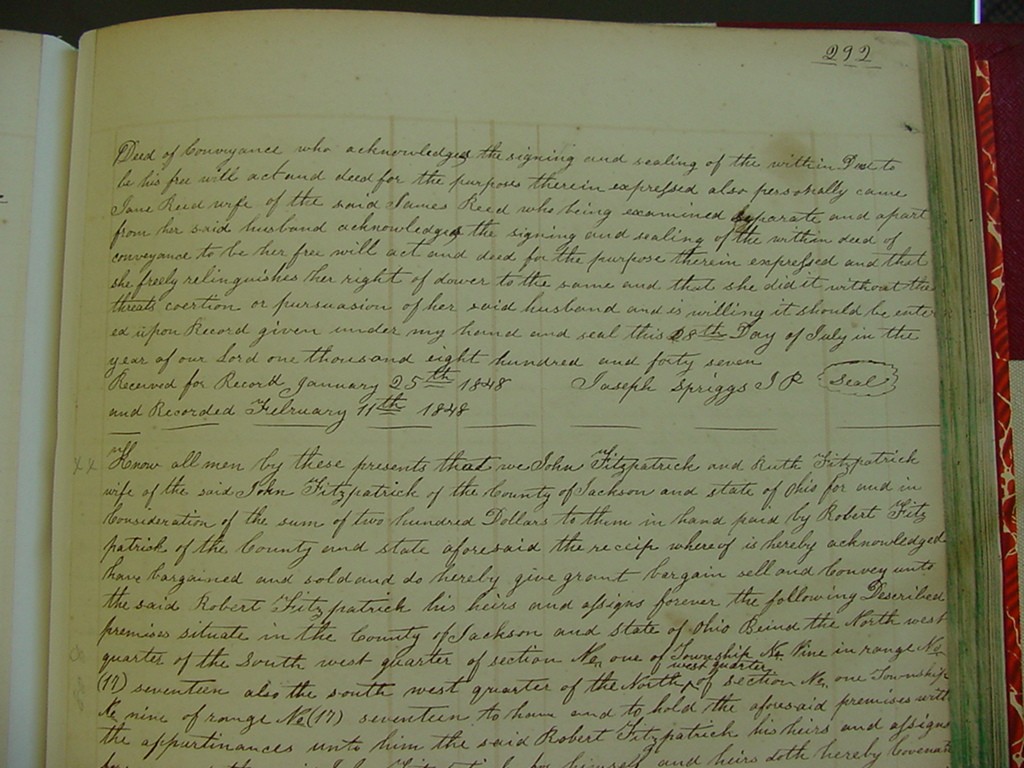 292
Deed of Conveyance who acknowledged the signing and sealing of the within Deed to
be his free will act and deed for the purpose therein expressed also personally came
Jane Reed wife of the said James Reed who being examined seperate and apart
from her said husband acknowledged the signing and sealing of the within deed of
conveyance to be her free will act and deed for the purpose therein expressed and that
she freely relinquishes her right of dower to the same and that she did it without the
threats coertion or pursuasion of her said husband and is willing it should be enter
ed upon Record given under my hand and seal this 28th Day of July in the
year of our Lord one thousand eight hundred and forty seven
Received for Record January 25th 1848 Joseph Spriggs J P Seal
and Recorded February 11th 1848
Know all men by these presents that we John Fitzpatrick and Ruth Fitzpatrick
wife of the said John Fitzpatrick of the County of Jackson and state of Ohio for and in
Consideration of the sum of two hundred Dollars to them in hand paid by Robert Fitz
patrick of the County and state aforesaid the receip whereof is hereby acknowledged
have bargained and sold and do hereby give grant bargain sell and Convey unto
the said Robert Fitzpatrick his heirs and assigns forever the following Described
premises situate in the County of Jackson and state of Ohio Beind the North west
quarter of the South west quarter of section No, one of Township No, Nine in range No,
(17) seventeen also the south west quarter of the North west quarter of section No, one Township
No, nine of range No, (17) seventeen to have and to hold the aforesaid premises with
the appurtinances unto him the said Robert Fitzpatrick his heirs and assigns
himself and heirs doth hereby Covenant